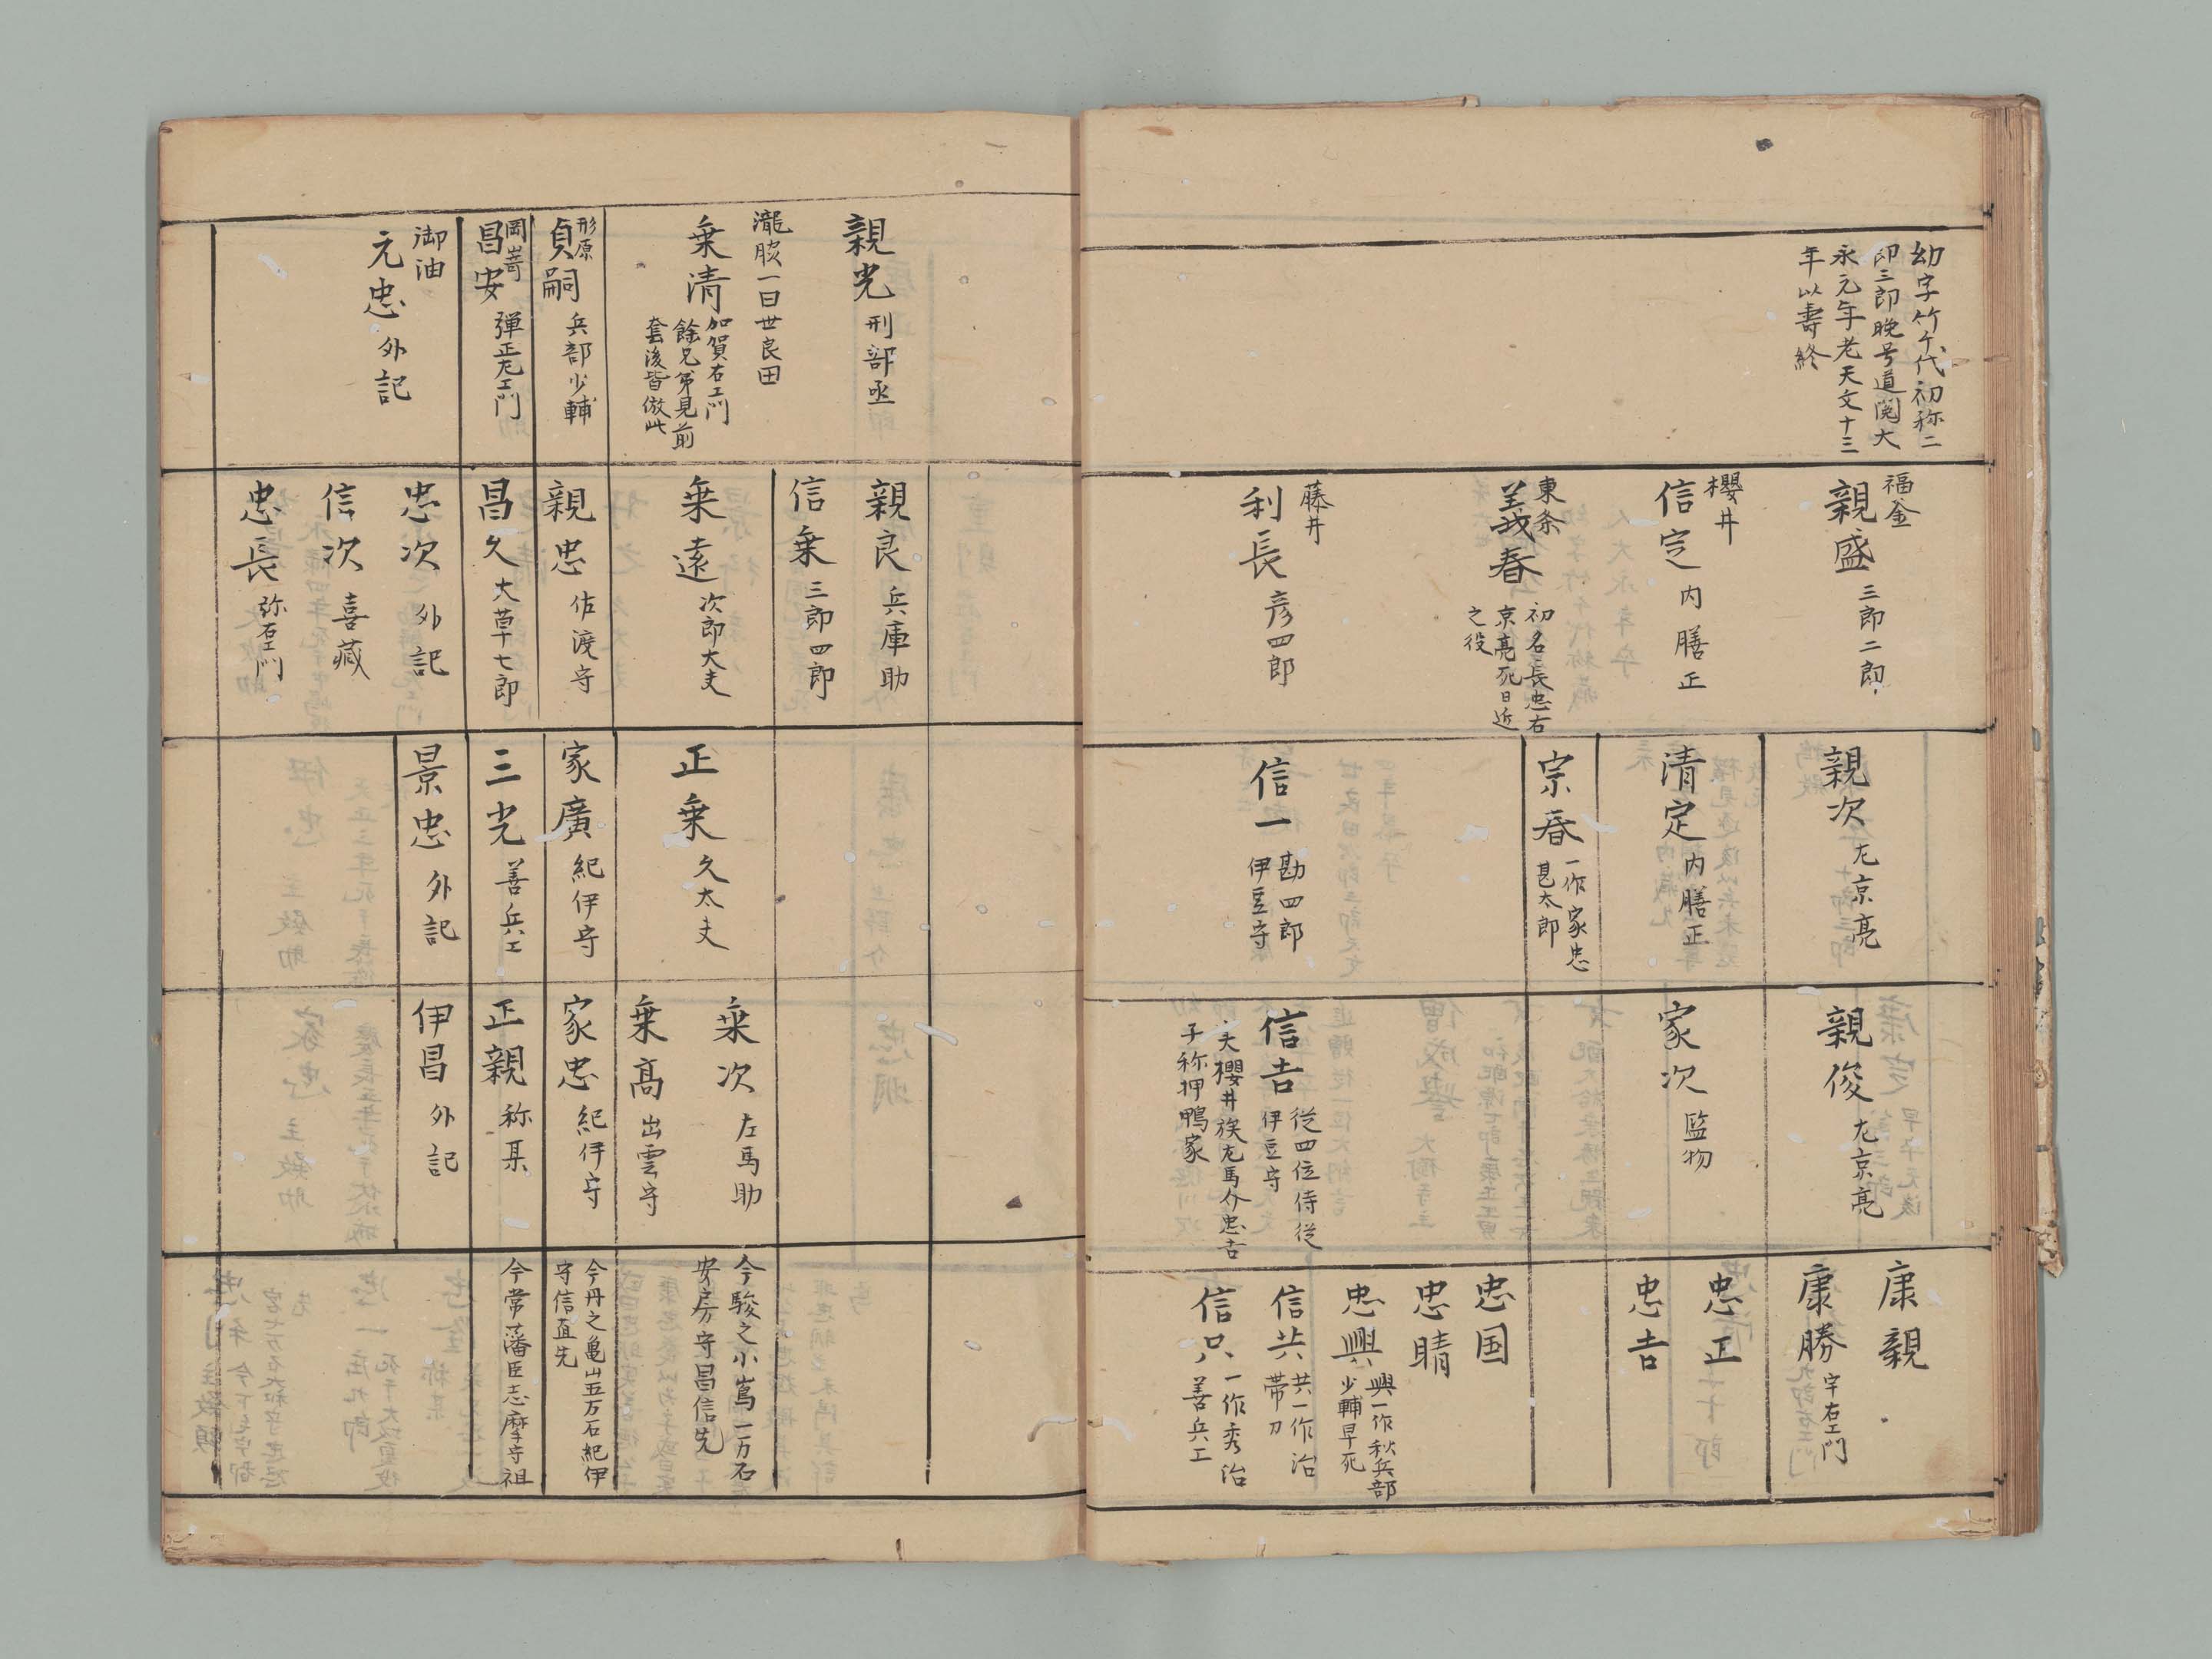 幼字竹千代初称二
郎三郎晩号道閲大
永元年老天文十三
年以壽終
福釜
親盛 三郎二郎
櫻井
信定 内膳正
東条
義春 初名長忠右
京亮死日近
之役
藤井
利長 彦四郎
親次 左京亮
清定 内膳正
宗春 一作家忠
甚太郎
信一 勘四郎
伊豆守
親俊 左京亮
家次 監物
信吉 従四位侍従
伊豆守
夫櫻井族左馬介忠吉
子称押鴨家
康親
康勝 宇右エ門
忠正
忠吉
忠国
忠晴
忠興 興一作秋兵部
少輔早死
信共 共一作治
帯刀
信只 一作秀治
善兵工
親光 刑部丞
瀧脇一曰世良田
乗清 加賀右エ門
餘兄弟見前
套後皆倣此
形原
貞嗣 兵部少輔
岡嵜
昌安 弾正左エ門
御油
元忠 外記
親良 兵庫助
信乗 三郎四郎
乗遠 次郎大夫
親忠 佐渡守
昌久 大草七郎
忠次 外記
信次 喜藏
忠長 弥右エ門
正乗 久太夫
家廣 紀伊守
三光 善兵工
景忠 外記
乗次 左馬助
乗高 出雲守
家忠 紀伊守
正親 称某
伊昌 外記
今駿之小嶌一万石
安房守昌信先
今丹之亀山五万石紀伊
守信直先
今常藩臣志摩守祖